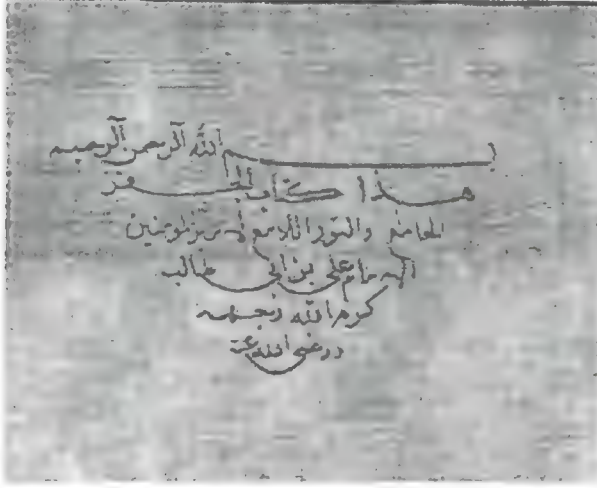 بسم الله الرحمن الرحيم
هذا كتاب الجفر
الجامع والنور اللامع لامير المومنين
الامام علي بن ابي طالب
كرم الله وجهه
ورضي الله عنه